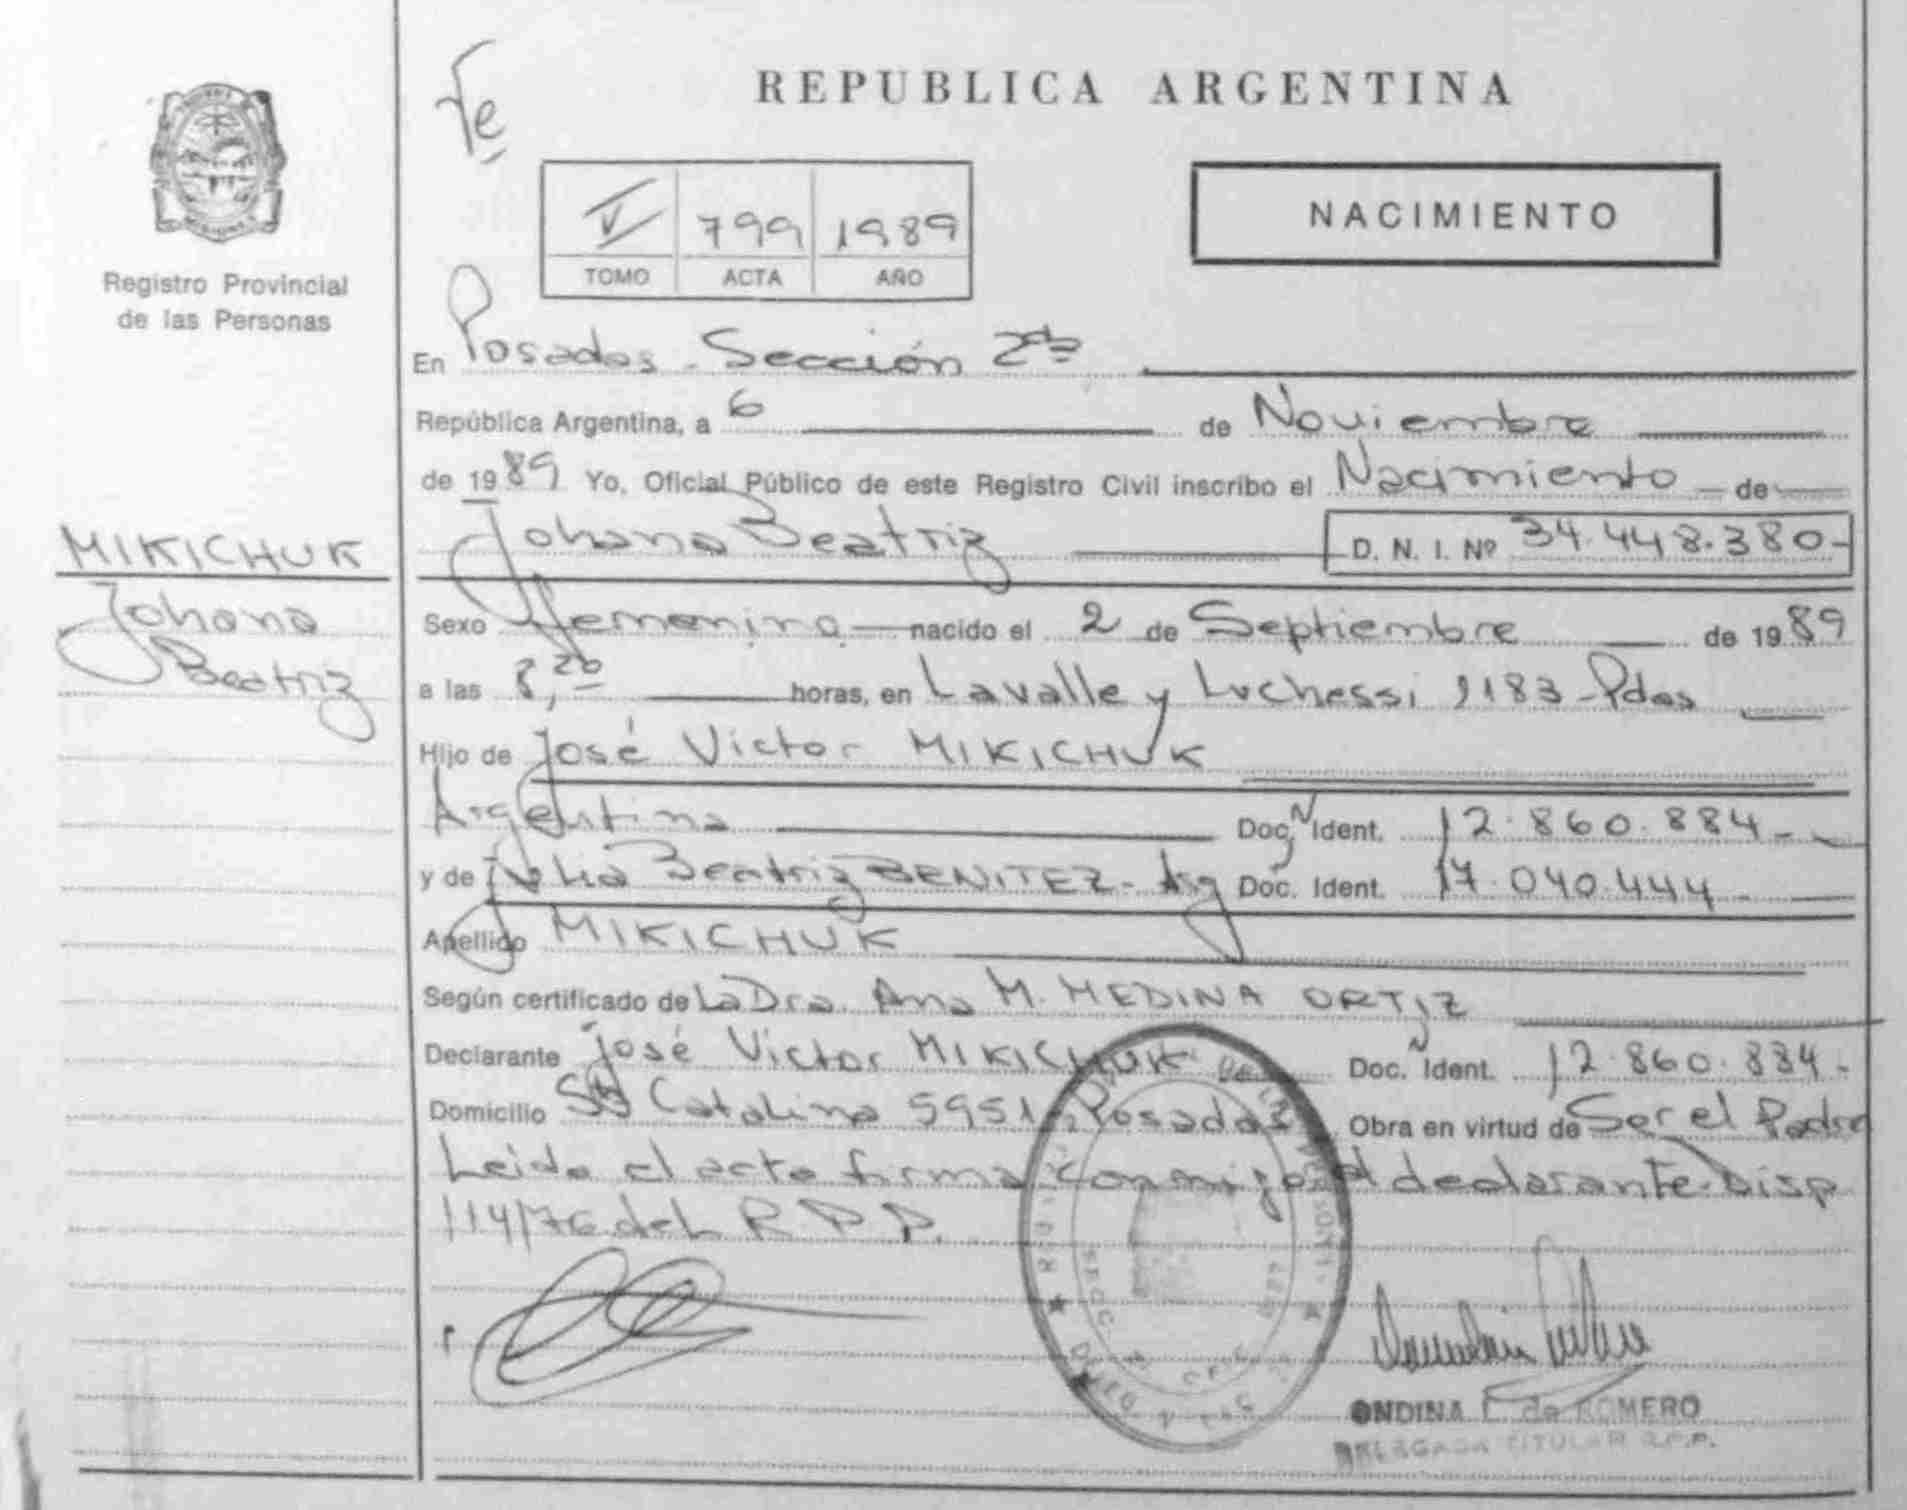 Fe
REPUBLICA ARGENTINA
V 799 1989
TOMO ACTA AÑO
NACIMIENTO
Registro Provincial
de las Personas
En Posadas - Sección 2da
República Argentina, a 6 de Noviembre
de 1989 Yo, Oficial Público de este Registro Civil inscribo el Nacimiento de
MIKICHUK
Johana
Beatriz
Johana Beatriz D. N. I. Nº 34.448.380-
Sexo femenino nacido el 2 de Septiembre de 1989
a las 8,20 horas, en Lavalle y Luchessi 1183 - Pdas
Hijo de José Victor MIKICHUK
Argentina Doc. Ident. 12.860.884-
y de Julia Beatriz BENITEZ - Arg Doc. Ident. 17.040.444-
Apellido MIKICHUK
Según certificado de La Dra. Ana M. MEDINA ORTIZ
Declarante José Victor MIKICHUK Doc. Ident. 12.860.884-
Domicilio Sta Catalina 5951 - Posadas Obra en virtud de Ser el Padre
Leida el acta firma conmigo el declarante. Disp
114/76 del R.P.P.
ONDINA de ROMERO
DELEGADA TITULAR R.P.P.